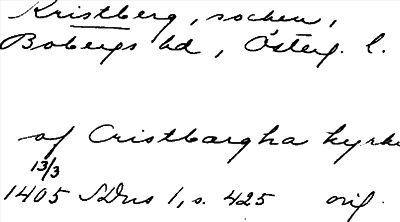 Kristberg, socken,
Bobergs hd, Österg. l.
af Cristbargha kyrke
13/3
1405 SDns 1, s. 425 orig.